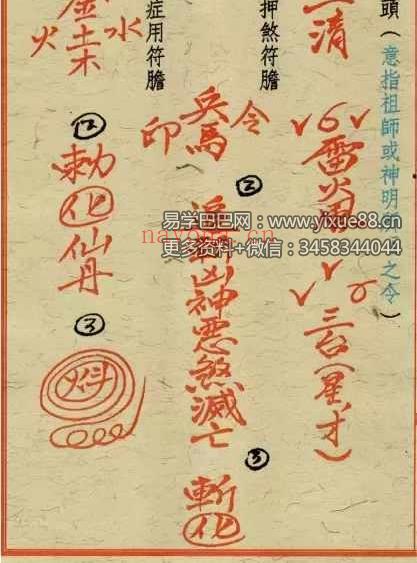 頭（意指祖師或神明
之令）
清
雷
三台（星才）
押煞符膽
令
兵馬
印
②
凶神惡煞滅亡
③
斬
化
症用符膽
水
金土木
火
②
勅化仙丹
③
易学巴巴网：www.yixue88.cn
更多资料+微信：3458344044